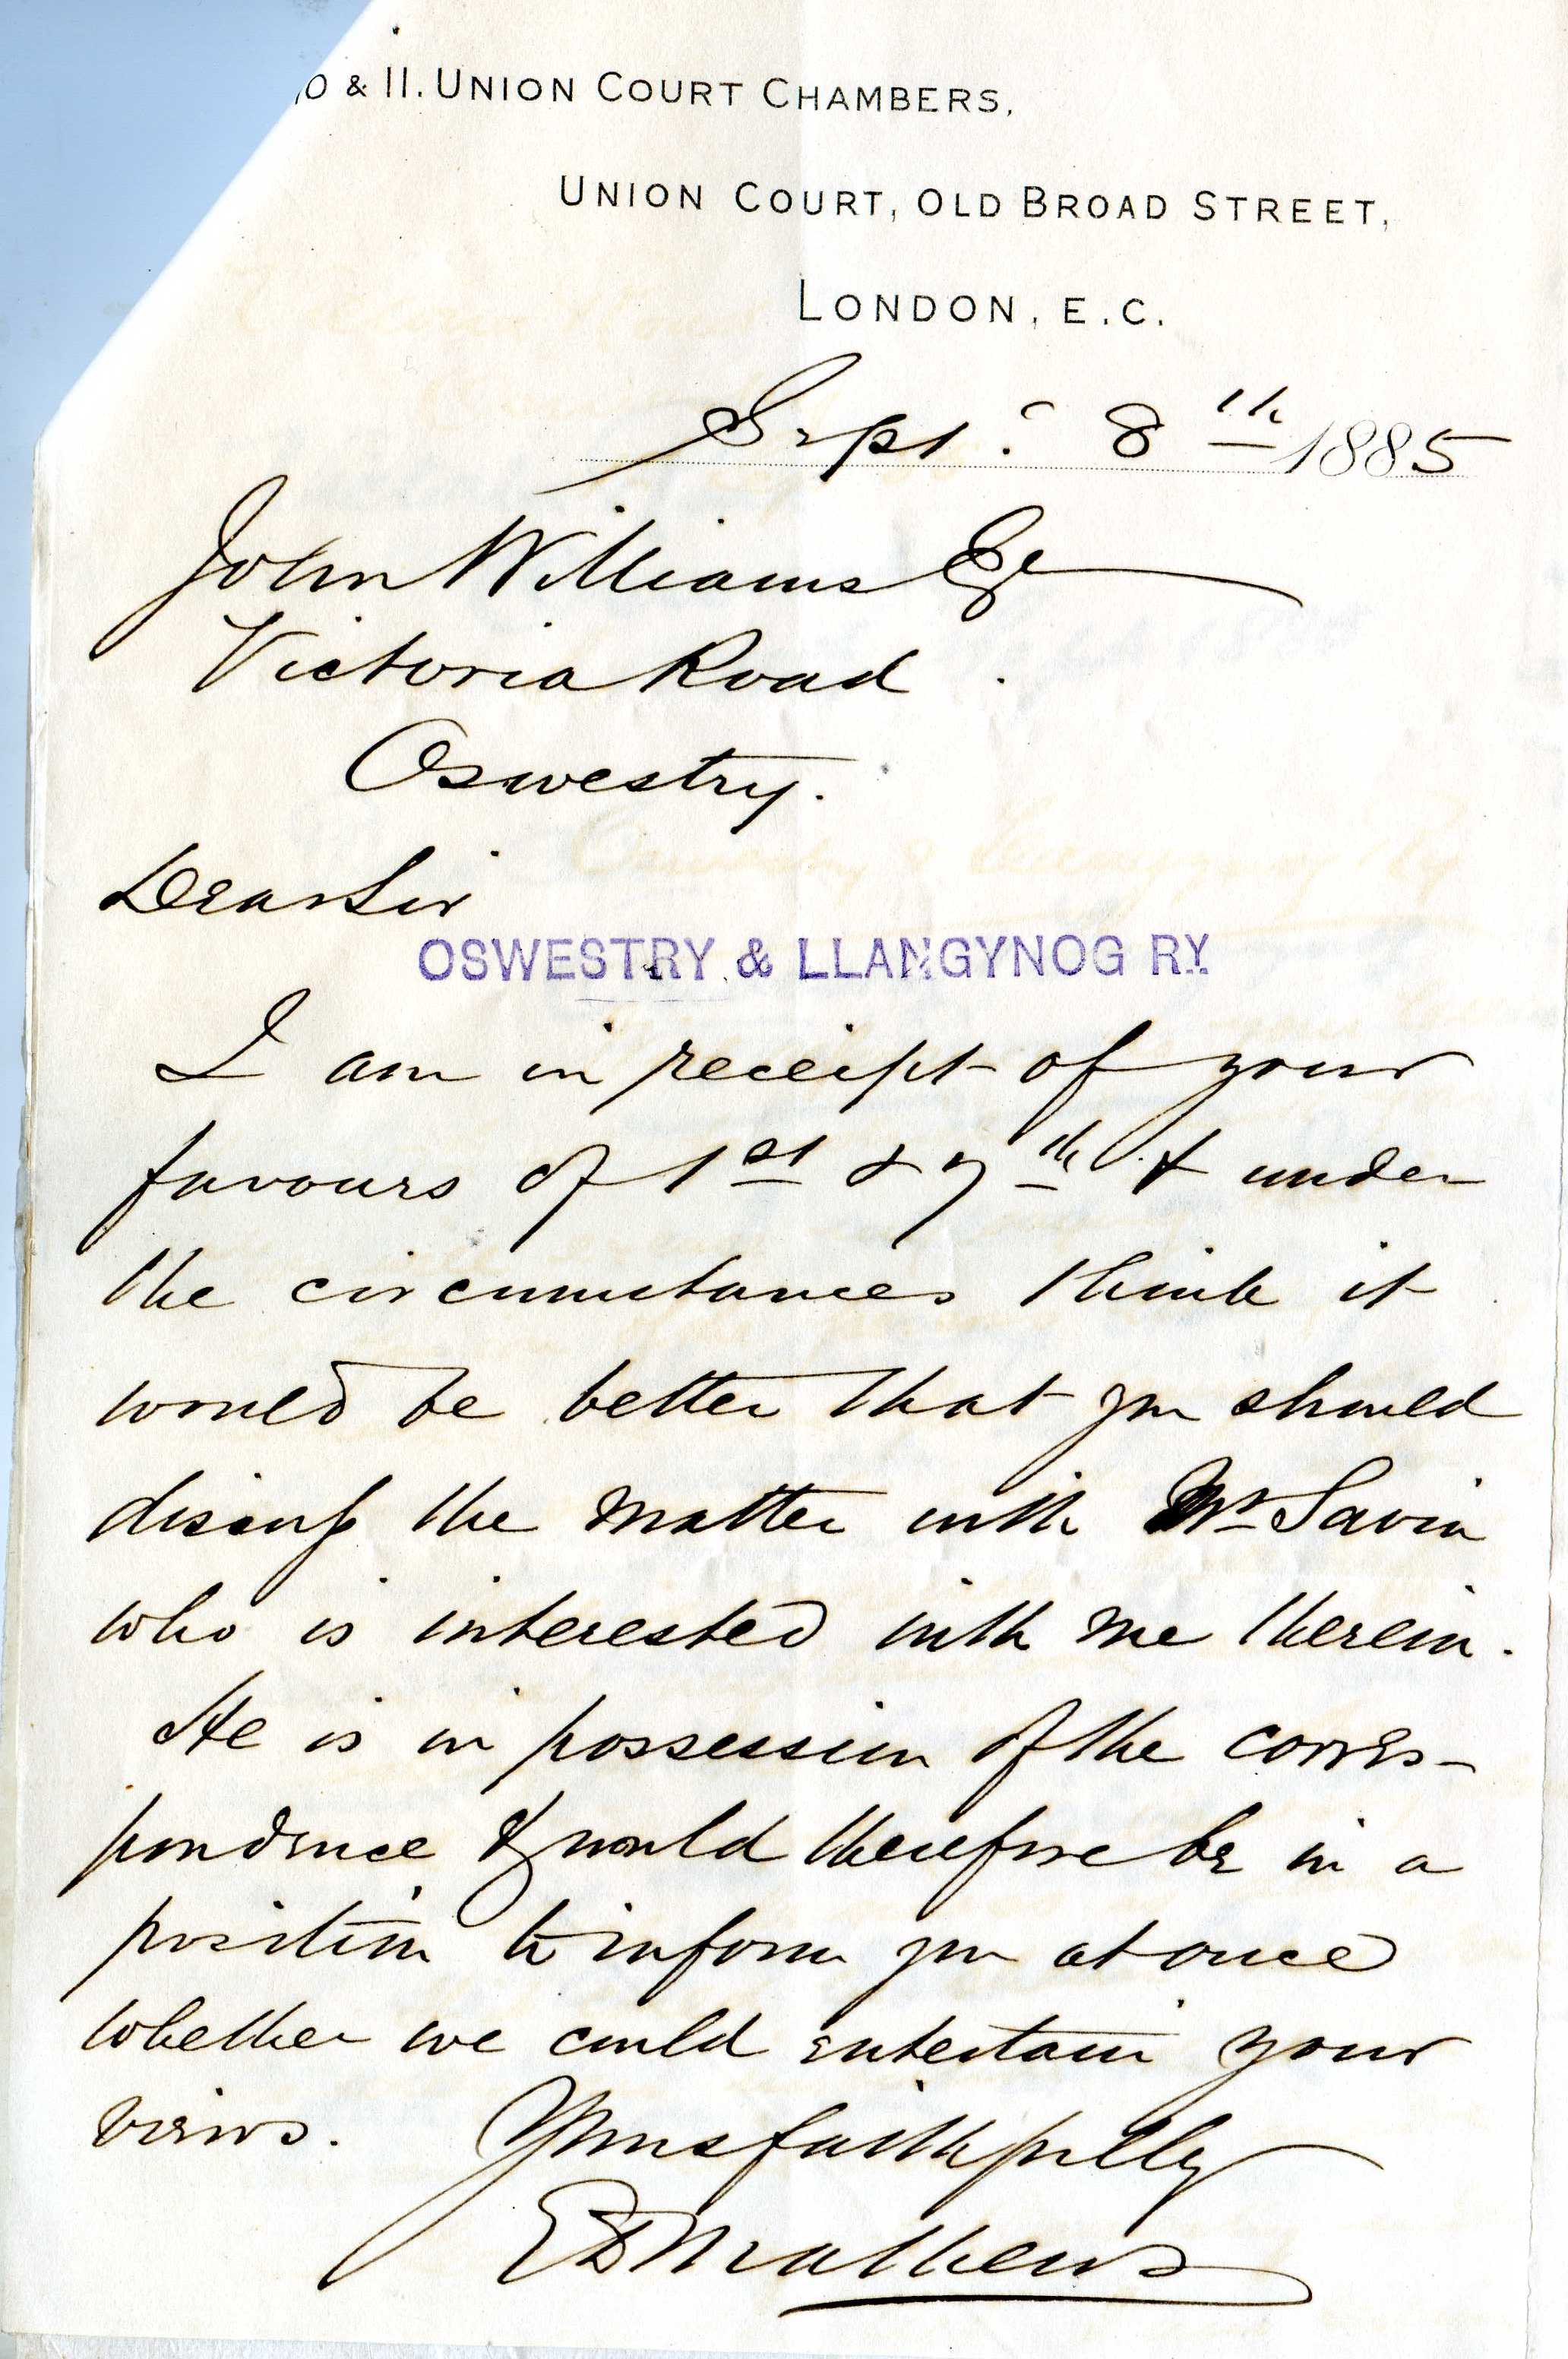 10 & 11. UNION COURT CHAMBERS,
UNION COURT, OLD BROAD STREET,
LONDON, E.C.
Sept. 8th 1885
John Williams Esq
Victoria Road
Oswestry.
Dear Sir
OSWESTRY & LLANGYNOG RY.
I am in receipt of your
favours of 1st & 7th & under
the circumstances think it
would be better that you should
discuss the matter with Mr Savin
who is interested with me therein.
He is in possession of the corres-
pondence & would therefore be in a
position to inform you at once
whether we could entertain your
views. Yours faithfully
E D Mathews